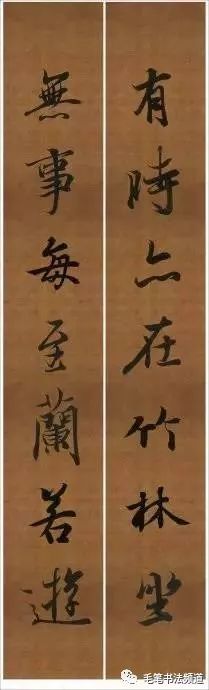 有時亦在竹林坐
無事每至蘭若遊
毛笔书法频道